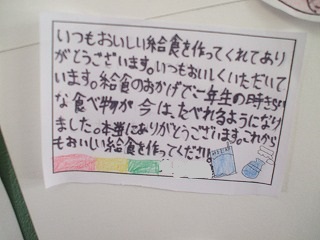 いつもおいしい給食を作ってくれてあり
がとうございます。いつもおいしくいただいて
います。給食のおかげで一年生の時きらい
な食べ物が今は、たべれるようになり
ました。本当にありがとうございます。これから
もおいしい給食を作ってください。